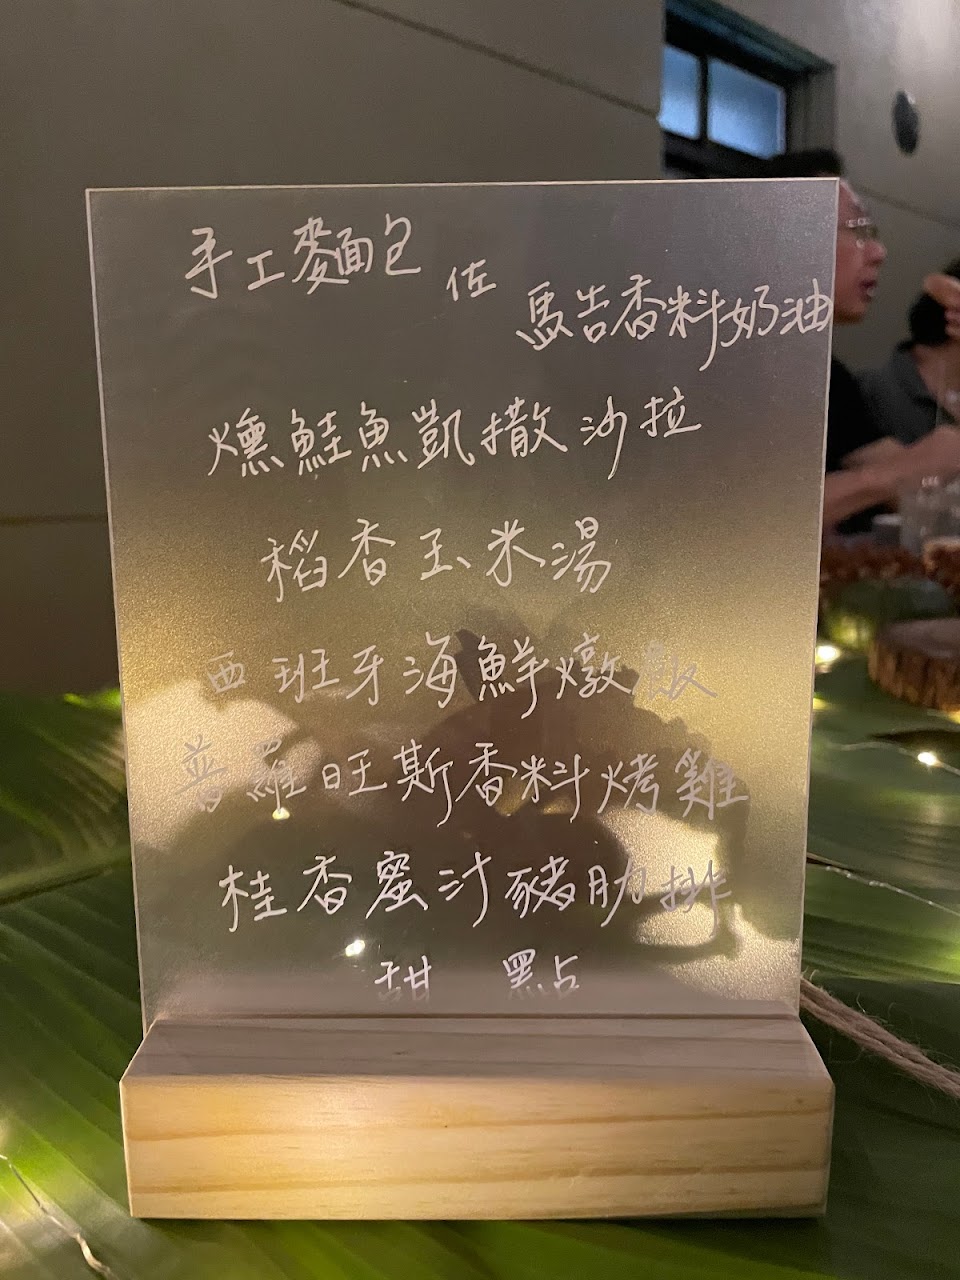 手工麵包 佐 馬告香料奶油
燻鮭魚凱撒沙拉
稻香玉米湯
西班牙海鮮燉飯
普羅旺斯香料烤雞
桂香蜜汁豬肋排
甜 點